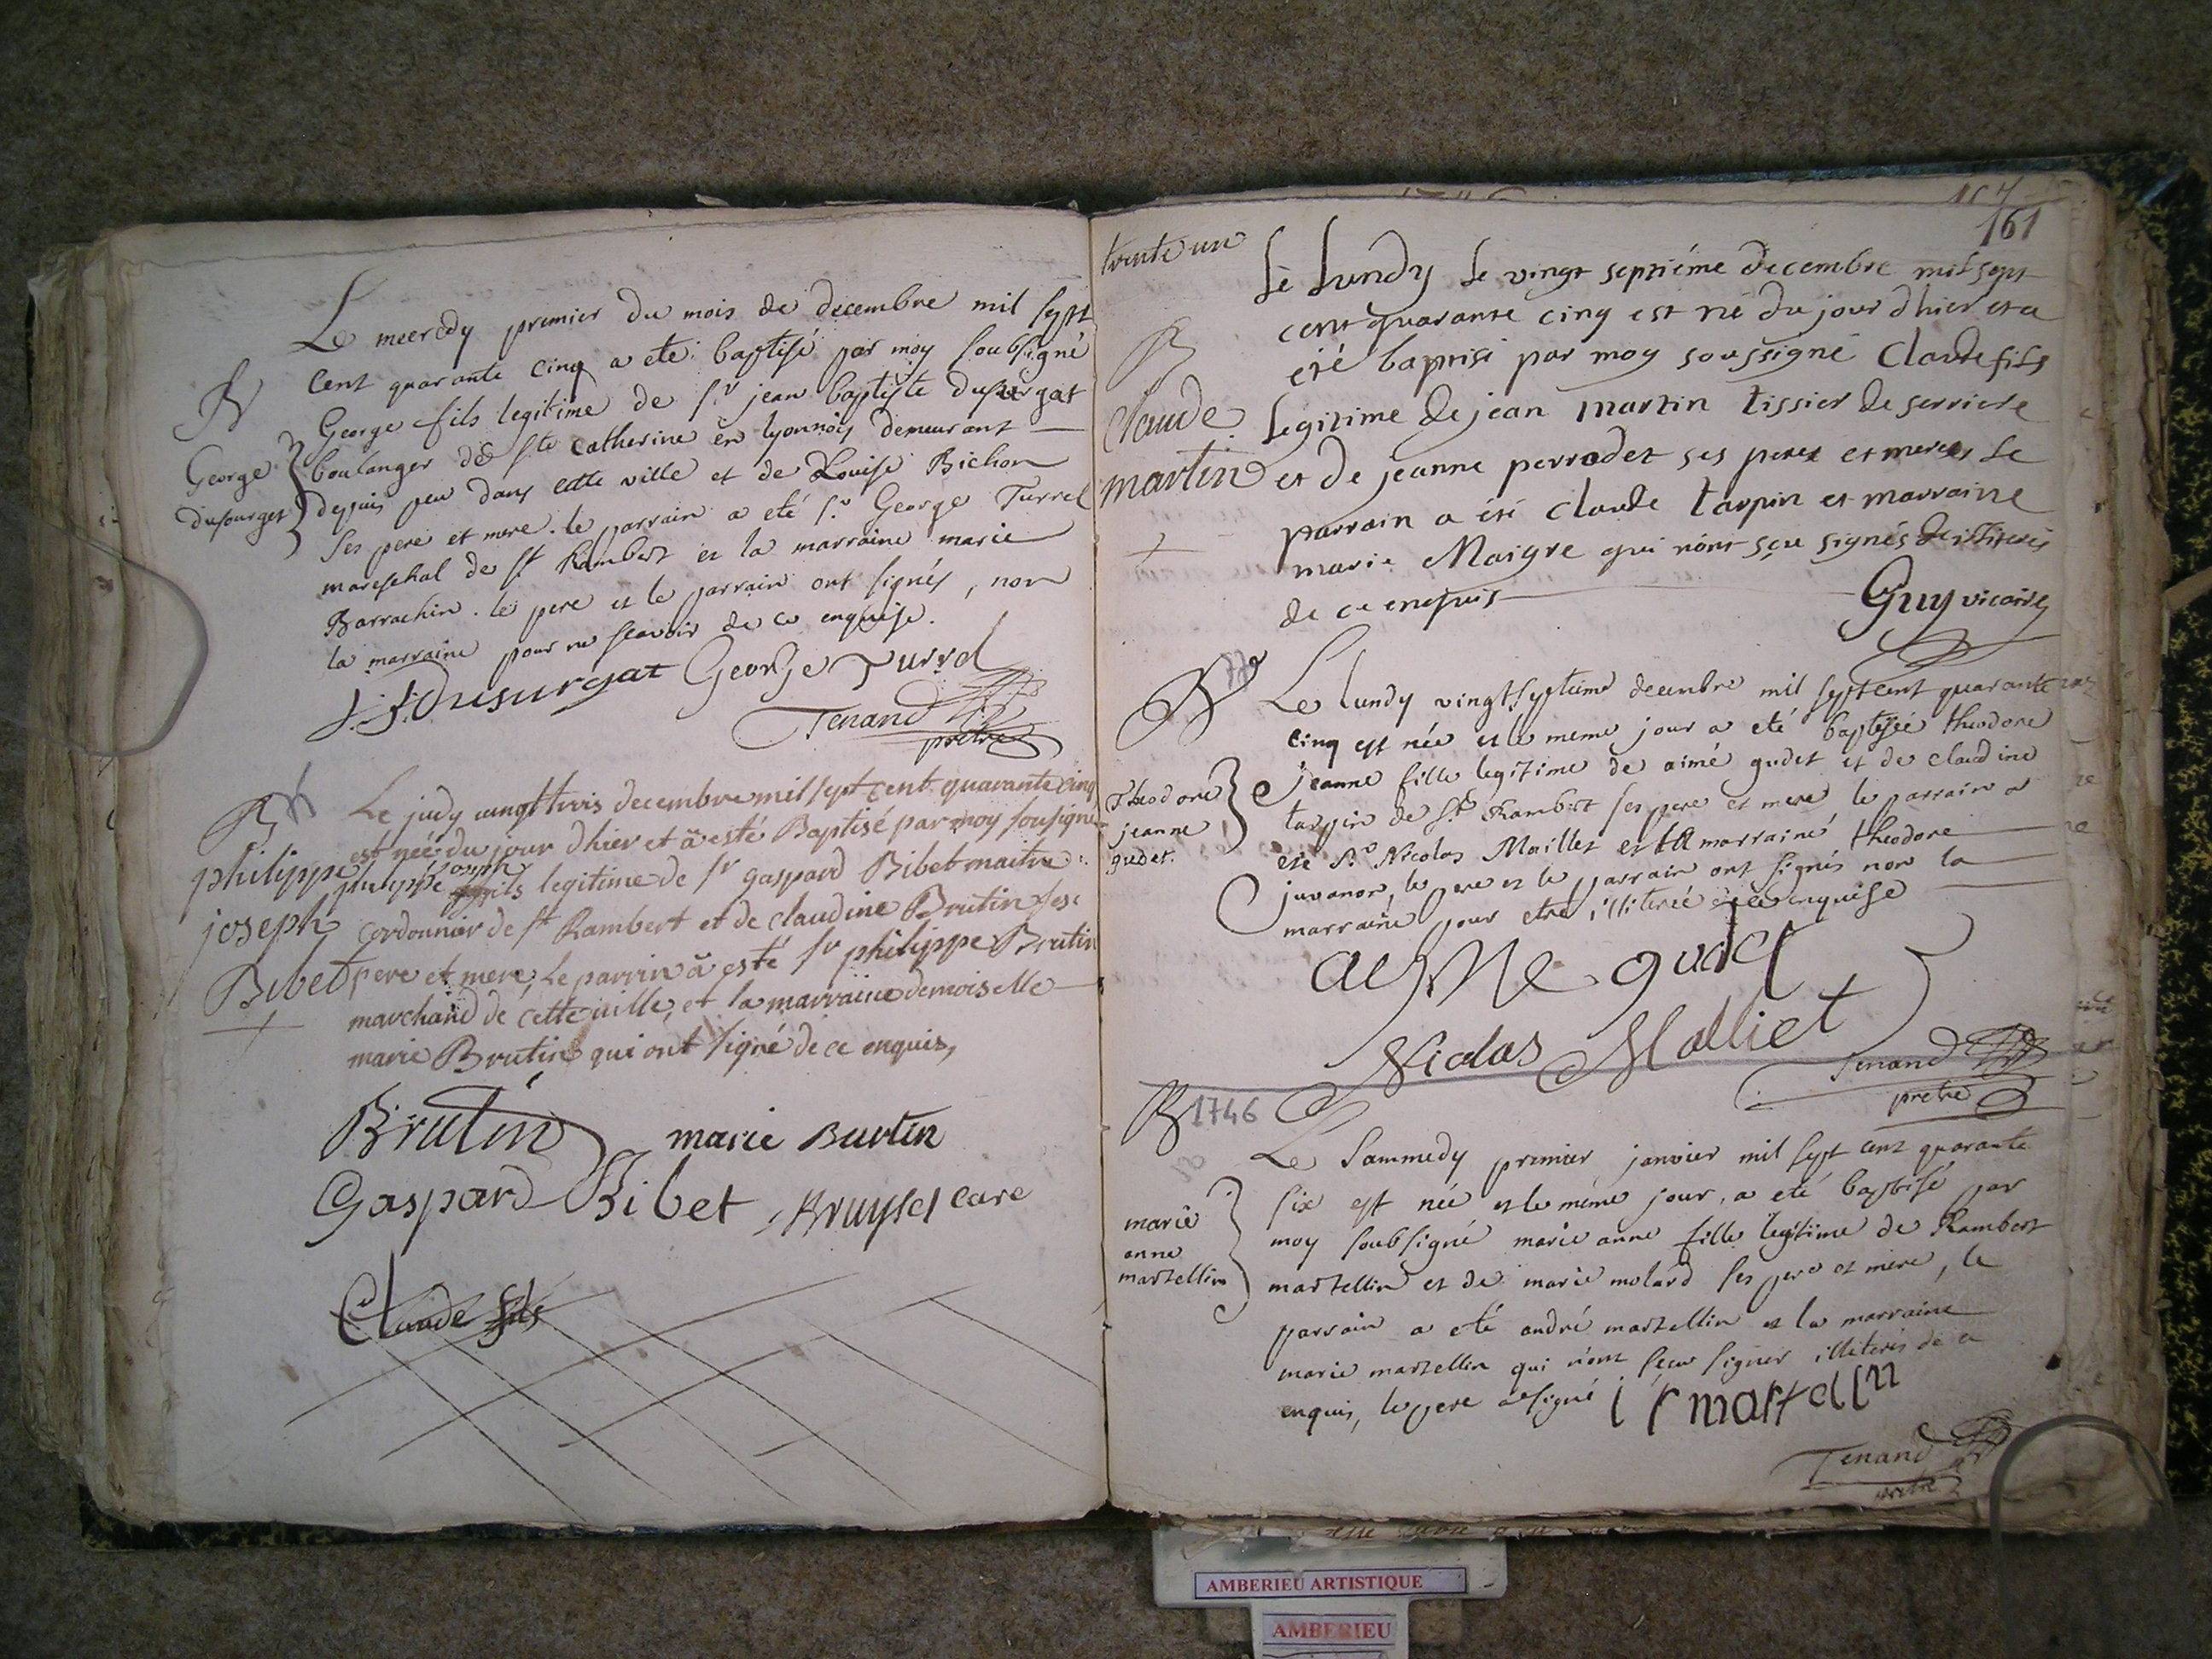 Le mecredy premier du mois de decembre mil sept
cent quarante cinq a eté baptisé par moy soubsigné
B
George fils legitime de Sr jean baptiste dusurgat
George
dusourget
boulanger de Ste catherine en lyonnois demeurant
depuis peu dans cette ville et de Louise Bichon
ses pere et mere. le parrain a eté Sr George Turrel
mareschal de St Rambert et la marraine marie
Barrachin. le pere et le parrain ont signés, non
la marraine pour ne scavoir de ce enquise.
J. J. Dusurgat George Turrel
Tenand
pretre
B
Le judy vingt trois decembre mil sept cent quarante cinq
est née du jour dhier et a esté Baptisé par moy sousigné
philippe
joseph
Bibet
philippe joseph fils legitime de Sr gaspard Bibet maitre
cordonnier de St Rambert et de claudine Brutin ses
pere et mere, Le parrin a esté Sr philippe Brutin
marchand de cette ville, et la marraine demoiselle
marie Brutin qui ont signé de ce enquis,
Brutin marie Burtin
Gaspard Bibet, Bruyset curé
Claude fils
161
trente un
Le Lundy le vingt septiéme decembre mil sept
cent quarante cinq est né du jour dhier et a
B
été baptisé par moy soussigné Claude fils
Claude
martin
Legitime de jean martin tissier de serriere
et de jeanne perrodet ses peres et meres le
parrain a été claude tarpin et marraine
marie Maigre qui nont sçu signés de illiterés
de ce enquis
Guy vicaire
B
Le lundy vingt septieme decembre mil sept cent quarante
cinq est née et le meme jour a eté baptisée theodore
Theodore
jeanne
gudet.
jeanne fille legitime de aimé gudet et de claudine
tarpin de St Rambert ses pere et mere le parrain a
eté Sr Nicolas Maillet et la marraine theodore
juvanon, le pere et le parrain ont signés non la
marraine pour etre illiterée de ce enquise
aymé gudet
Nicolas Malliet
Tenand
pretre
B 1746
Le Sammedy premier janvier mil sept cent quarante
six est née et le méme jour, a eté baptisé par
marie
anne
martellin
moy soubsigné marie anne fille legitime de Rambert
martellin et de marie molard ses pere et mere, le
parrain a eté andré martellin et la marraine
marie martellin qui n'ont sceu signer illiterés de ce
enquis, le pere a signé martelin
Tenand
pretre
AMBERIEU ARTISTIQUE
AMBERIEU